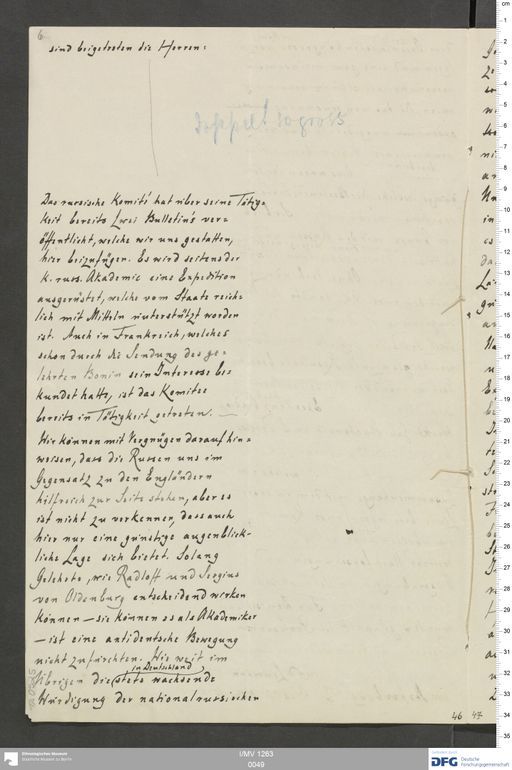 6
sind beigetreten die Herren:
doppelt so gross
Das russische Komité hat über seine Tätig=
keit bereits zwei Bulletin's ver=
öffentlicht, welche wir uns gestatten,
hier beizufügen. Es wird seitens der
K. russ. Akademie eine Expedition
ausgerüstet, welche vom Staate reich=
lich mit Mitteln unterstützt worden
ist. Auch in Frankreich, welches
schon durch die Sendung des ge=
lehrten Bonin sein Interesse be=
kundet hatte, ist das Komitee
bereits in Tätigkeit getreten. —
Wir können mit Vergnügen darauf hin=
weisen, dass die Russen uns im
Gegensatz zu den Engländern
hilfreich zur Seite stehen, aber es
ist nicht zu verkennen, dass auch
hier nur eine günstige augenblick-
liche Lage sich bietet. Solang
Gelehrte, wie Radloff und Sergius
von Oldenburg entscheidend wirken
können – sie können es als Akademiker
– ist eine antideutsche Bewegung
nicht zu fürchten. Wie weit im
in Deutschland
Übrigen die stets wachsende
Würdigung der nationalrussischen
46 47
I/MV 1263
0049
Ethnologisches Museum
Staatliche Museen zu Berlin
DFG
Deutsche
Forschungsgemeinschaft